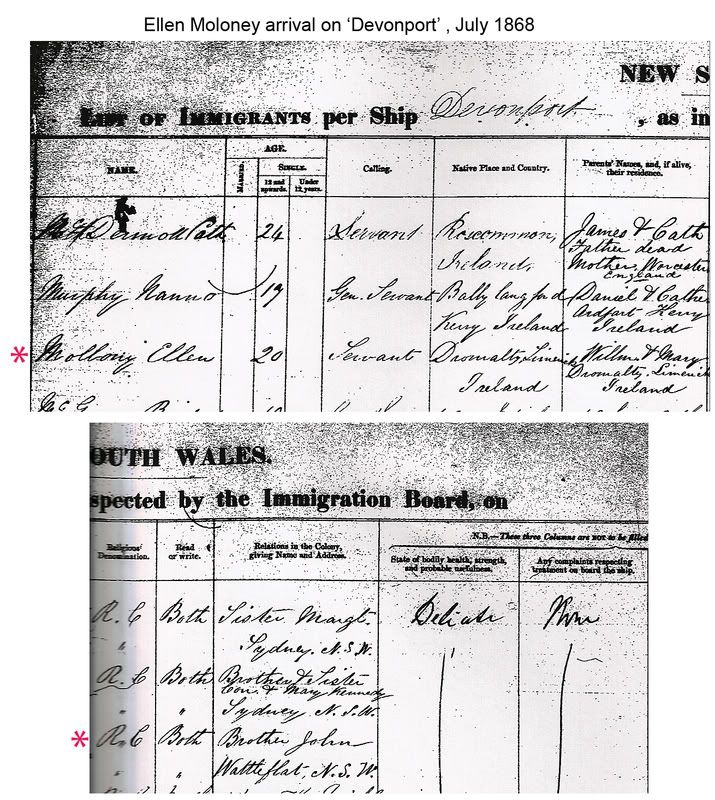 Ellen Moloney arrival on ‘Devonport’ , July 1868
NEW S
List of Immigrants per Ship Devonport , as in
NAME.
AGE.
MARRIED.
SINGLE.
12 and upwards.
Under 12 years.
Calling.
Native Place and Country.
Parents' Names, and, if alive, their residence.
McDermott Cath 24 Servant Roscommon, James & Cath
Father dead
Ireland, Mother, Worcester
England
Murphy Nanno 19 Gen. Servant Bally longford Daniel & Cathe
Kerry Ireland Ardfort Kerry
Ireland
* Mollony Ellen 20 Servant Dromalty, Limerick Willm & Mary
Dromalty, Limerick
Ireland Ireland
OUTH WALES.
spected by the Immigration Board, on
N.B.—These three Columns are NOT to be filled
Religious Denomination.
Read or write.
Relations in the Colony, giving Name and Address.
State of bodily health, strength, and probable usefulness.
Any complaints respecting treatment on board the ship.
R. C Both Sister Margt. Delicate None
" Sydney. N.S.W.
R. C Both Brother & Sister
Con. & Mary Kennedy
" " Sydney N.S.W.
* R. C Both Brother John
" " Wattleflat, N.S.W.